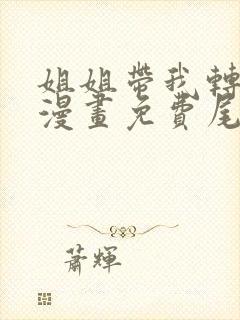 姐姐帶我轉
漫畫免費尾
蕭輝